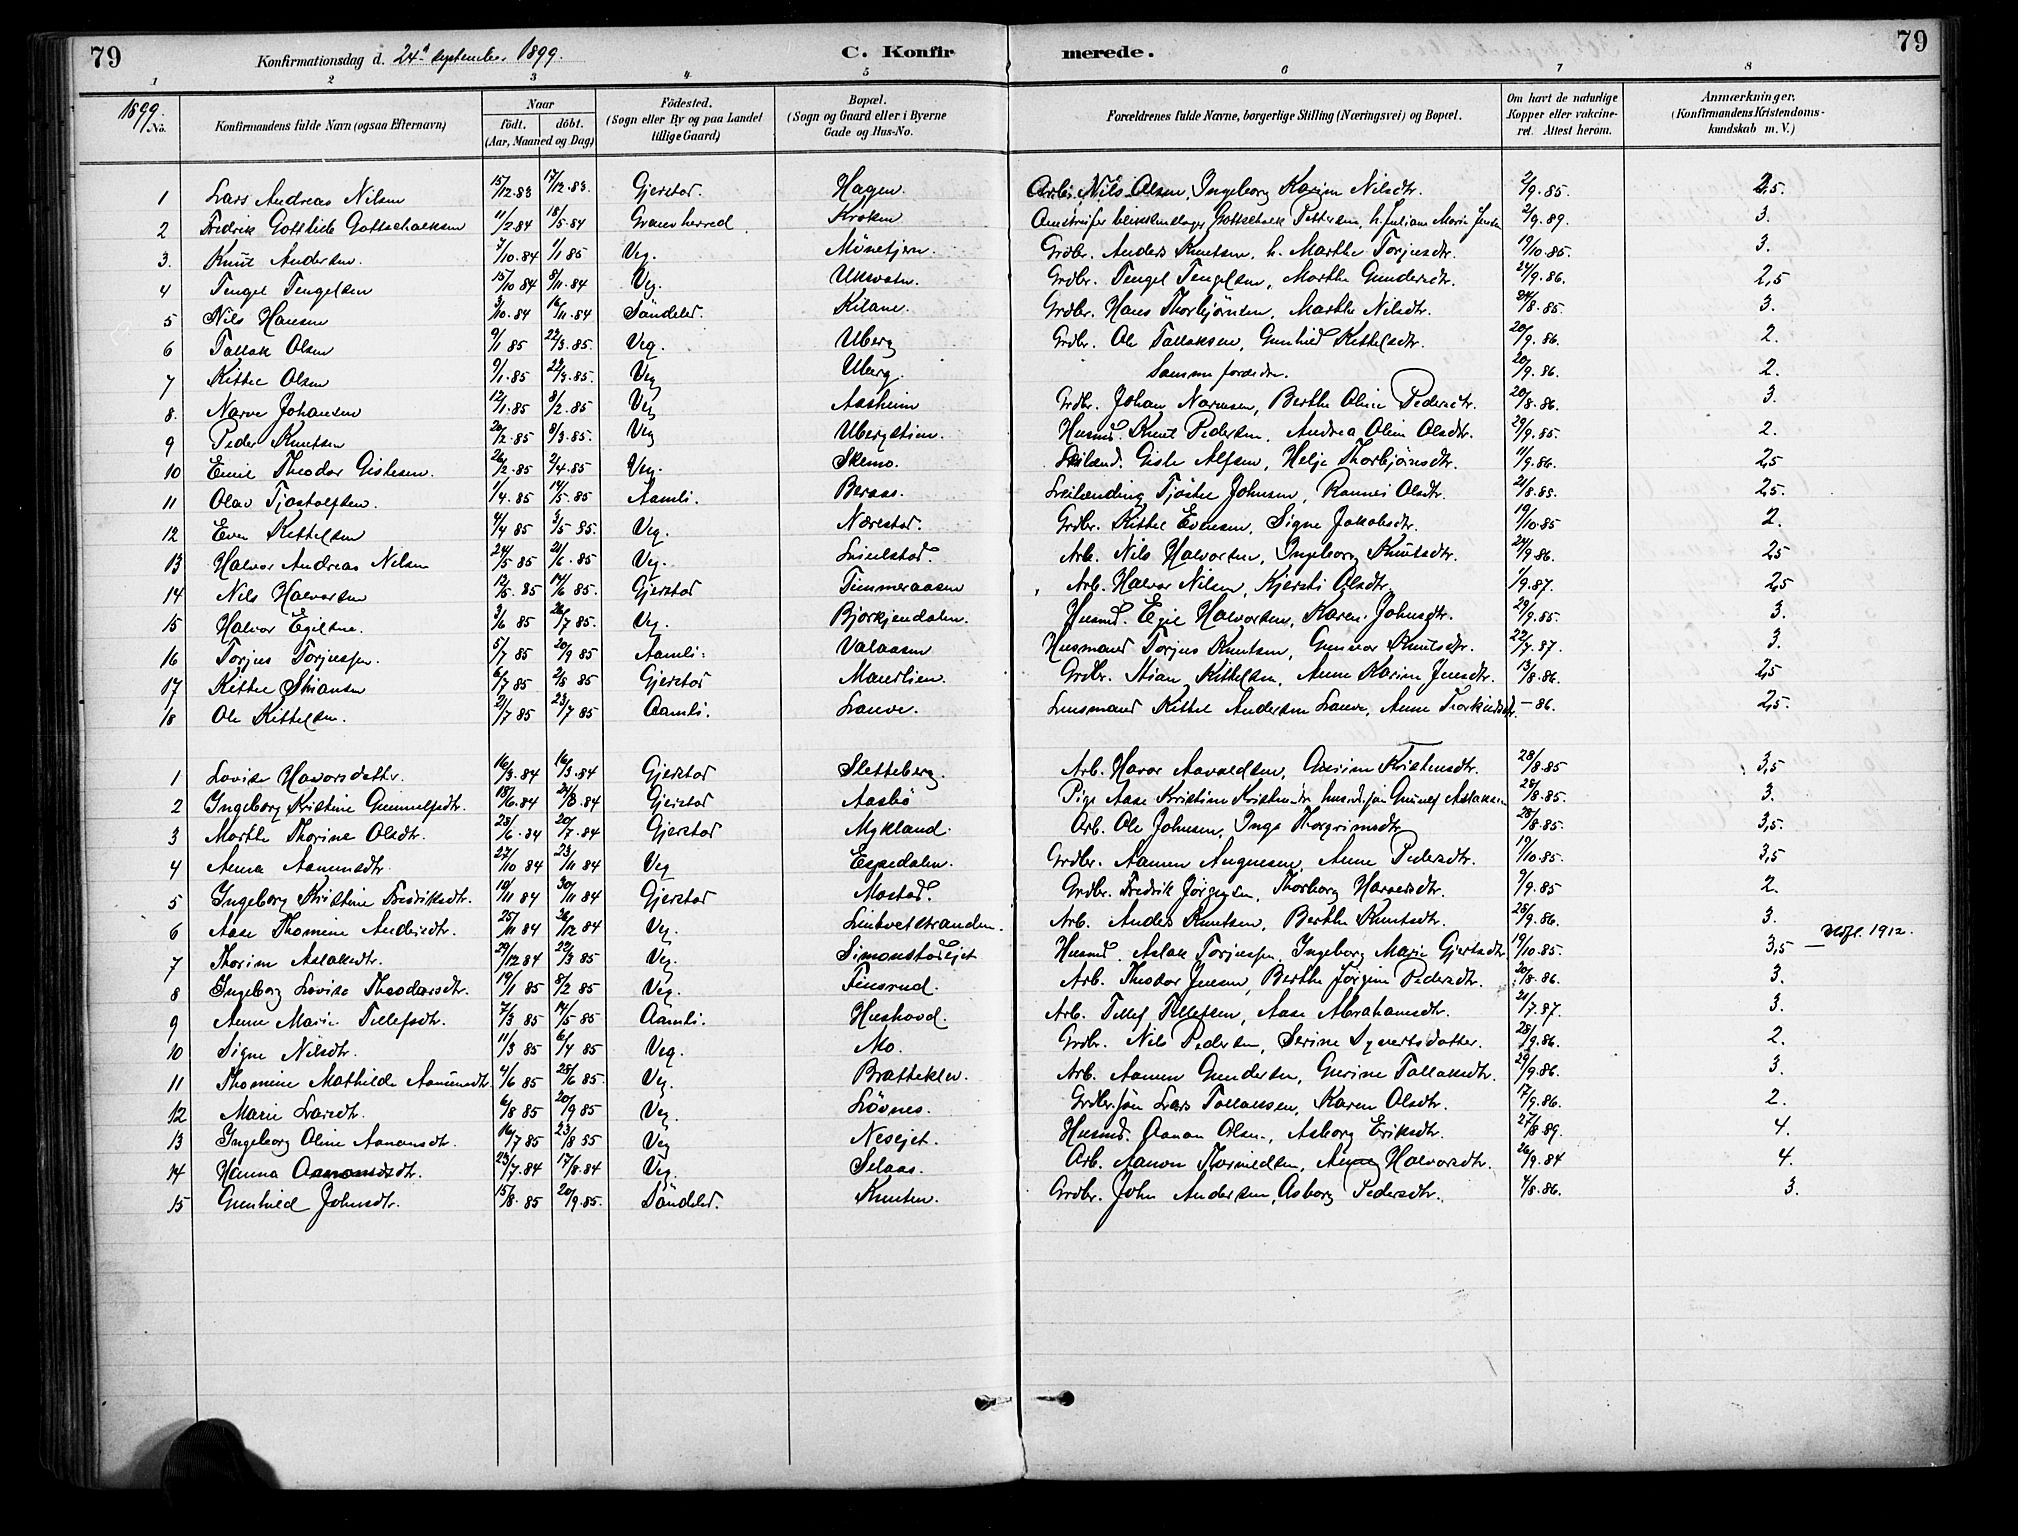 79
Konfirmationsdag d. 24de september 1899.
C. Konfirmerede.
79
1 2 3 4 5 6 7 8
1899. No.
Konfirmandens fulde Navn (ogsaa Efternavn)
Naar födt. döbt. (Aar, Maaned og Dag)
Födested. (Sogn eller By og paa Landet tillige Gaard)
Bopæl. (Sogn og Gaard eller i Byerne Gade og Hus-No.
Forældrenes fulde Navne, borgerlige Stilling (Næringsvei) og Bopæl.
Om havt de naturlige Kopper eller vaccineret. Attest herom.
Anmærkninger. (Konfirmandens Kristendomskundskab m. V.)
1 Lars Andreas Nilsen 15/12.83 17/12.83. Gjerstad. Hagen. Arb. Nils Olsen, Ingeborg Karine Nilsdtr. 2/9.85. 2,5.
2 Fredrik Gottlieb Gottschalksen 11/2 84 18/5 84 Gravenherred. Kroken Gottschalk Pettersen, h. Juliane Marie Jensen 2/9.89. 3.
3. Knut Andersen. 7/10.84 1/1 85 Veg. Mönetjern. Grdbr. Anders Knutsen, h. Marthe Torjusdtr. 19/10.85. 3.
4 Tengel Tengelsen 15/10 84 8/11.84 Veg. Uksvatn. Grdbr. Tengel Tengelsen, Marthe Gundersdtr. 24/9.86. 2,5
5 Nils Hansen 3/10.84 16/11.84 Söndeled. Kilane. Grdbr. Hans Thorbjörnsen, Marthe Nilsdtr. 24/8.85. 3.
6 Tallak Olsen 9/1 85 22/3.85. Veg. Uberg Grdbr. Ole Tallaksen, Gunhild Kittelsdtr. 20/9.86. 2.
7 Kittel Olsen 9/1.85 22/3.85. Veg Uberg. Samme forældre. 20/9.86. 2.
8. Narve Johansen 12/1.85 8/2.85 Veg Aasheim Grdbr. Johan Narvesen, Berthe Oline Pedersdtr. 20/8.86. 3.
9 Peder Knutsen 20/2.85 8/3.85. Veg Ubergstien. Husmd. Knut Pedersen, Andrea Oline Olsdtr. 29/9.85. 2.
10 Emil Theodor Gislesen. 26/2.85 2/4.85 Veg. Skemo. Gisle Alfsen, Helje Thorbjörnsdtr. 11/9.86. 2,5
11 Olav Tjostolfsen. 1/4.85 14/5.85 Aamli. Beraas. Leilænding Tjöstel Johnsen, Rannei Olsdtr. 21/8.85. 2,5.
12 Even Kittelsen 4/4 85 3/5 85. Veg. Nærestad. Grdbr. Kittel Evensen, Signe Jakobsdtr. 19/10.85 2.
13 Halvor Andreas Nilsen 24/5 85 21/6.85 Veg. Liulstad. Arb. Nils Halvorsen, Ingeborg Knutsdtr. 24/9.86. 2,5
14 Nils Halvorsen 12/5.85 14/6 85. Gjerstad Timmeraasen Arb. Halvor Nilsen, Kjersti Olsdtr. 1/9.87. 2,5
15 Halvor Egilsen. 3/6 85 26/7 85. Veg. Bjorkjendalen. Husmd. Egil Halvorsen, Karen Johnsdtr. 29/9.85. 3.
16 Torjus Torjussen. 5/7 85 20/9 85 Aamli. Valaasen Husmand Torjus Knutsen, Gunvor Knutsdtr. 22/7.87. 3.
17 Kittel Stiansen 6/7 85 2/8 85 Gjerstad Maurlien. Grdbr. Stian Kittelsen, Anne Karine Jensdtr. 13/8.86. 2,5
18 Ole Kittelsen. 2/7 85 23/7 85 Aamli. Lauve. Lensmand Kittel Andersen Lauve, Anne Torkildsdtr. — 86. 2,5.
1 Lovise Havorsdatter. 16/3.84 16/3.84 Gjerstad Sletteberg. Arb. Havor Aavaldsen, Gurine Kristensdtr. 28/8.85 3,5
2 Ingeborg Kristine Gunnulfsdtr. 18/6.84 24/8.84 Gjerstad Aasbö Pige Aase Kristine Kristensdtr. Gunulf Aslaksen 28/8.85. 3.
3 Marthe Thorine Olsdtr. 23/6.84 20/7.84 Gjerstad Mykland. Arb. Ole Johnsen, Inge Thorgrimsdtr. 28/8.85. 3,5.
4 Anna Aamunsdtr. 27/10 84 23/11 84 Veg Espedalen. Grdbr. Aamun Augunsen, Anne Pedersdtr. 19/10.85. 3,5
5 Ingeborg Kristine Fredriksdtr. 10/11 84 30/11 84 Gjerstad Mostad. Grdbr. Fredrik Jörgensen, Thorborg Havorsdtr. 9/9.85 2.
6 Aase Thomine Andersdtr. 25/11 84 26/12 84 Veg. Lindtveitstranden. Arb. Anders Knutsen, Berthe Knutsdtr. 28/9.86. 3.
7 Thorine Aslaksdtr. 29/12 84 22/3 85 Veg. Simonstadejet Husmd. Aslak Torjussen, Ingeborg Marie Gjertsdtr. 19/10.85. 3,5 — Udfl. 1912.
8 Ingeborg Lovise Theodorsdtr. 19/1 85 8/2 85 Veg. Finsrud. Arb. Theodor Jensen, Berthe Jörgine Pedersdtr. 20/8.86. 3.
9 Anne Marie Tellefsdtr. 7/3 85 14/5 85 Aamli. Hushovd. Arb. Tellef Tellefsen, Aase Abrahamsdtr. 21/7.87. 3.
10 Signe Nilsdtr. 11/3 85 6/4 85 Veg. Mo. Grdbr. Nils Pedersen, Serine Syvertsdatter. 28/9.86. 2.
11 Thomine Mathilde Aanunsdtr. 4/6 85 28/6 85. Veg. Bratteklev. Arb. Aanun Gundersen, Gurine Tallaksdtr. 29/9.86. 3.
12 Marie Larsdtr. 6/8 85 20/9 85 Veg. Lövnes. Grdbr.sön Lars Tallaksen, Karen Olsdtr. 17/9.86. 2.
13 Ingeborg Oline Aanonsdtr. 16/7 85 23/8 85 Veg Nesejet. Husmd. Aanon Olsen, Asborg Eriksdtr. 27/8.89. 4.
14 Hanna Aanonsdtr. 23/7.84 17/8.84 Veg. Selaas. Arb. Aanon Thorvildsen, Anne Halvorsdtr. 26/9.84 4.
15 Gunhild Johnsdtr. 15/8.85 20/9.85. Söndeled. Knuten. Grdbr. John Andersen, Asborg Pedersdtr. 4/8.86. 3.